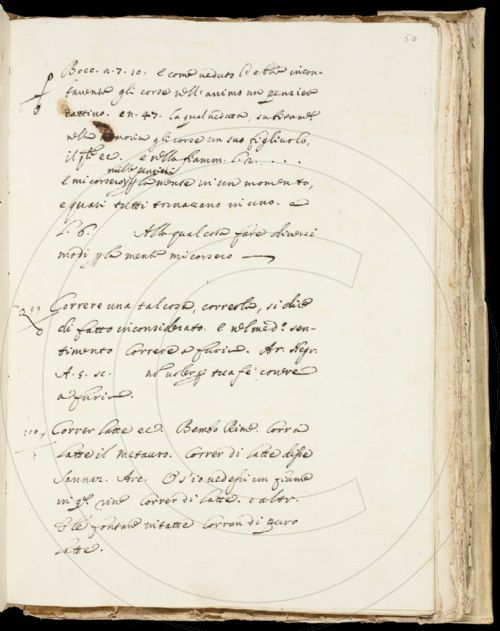 50
Bocc. n. 7. 10. e come veduto l'ebbe incon-
tanente gli corse nell'animo un pensier
cattivo. e n. 43. la qual veduta, subitamte
nella memoria gli corse un suo figliuolo,
il ql ec. e nella fiamm. l. 2. . . . .
mille pensieri
e mi corsero p la mente in un momento,
e quasi tutti tornavano in uno. e
l. 6. Alla qual cosa fare diversi
modi p la mente mi corsero
299 Correre una tal cosa, correrla, si dice
di fatto inconsiderato. e nel med.º sen-
timento Correre a furia. Ar. Negr.
A. 5. sc. tua fe' correre
a furia.
300 Correr latte ec. Bembo Rime. Corra
latte il Metauro. Correr di latte disse
Sannaz. Arc. O s'io vedessi un fiume
in qte rive Correr di latte. e altr.
E le fontane intatte Corran di puro
latte.